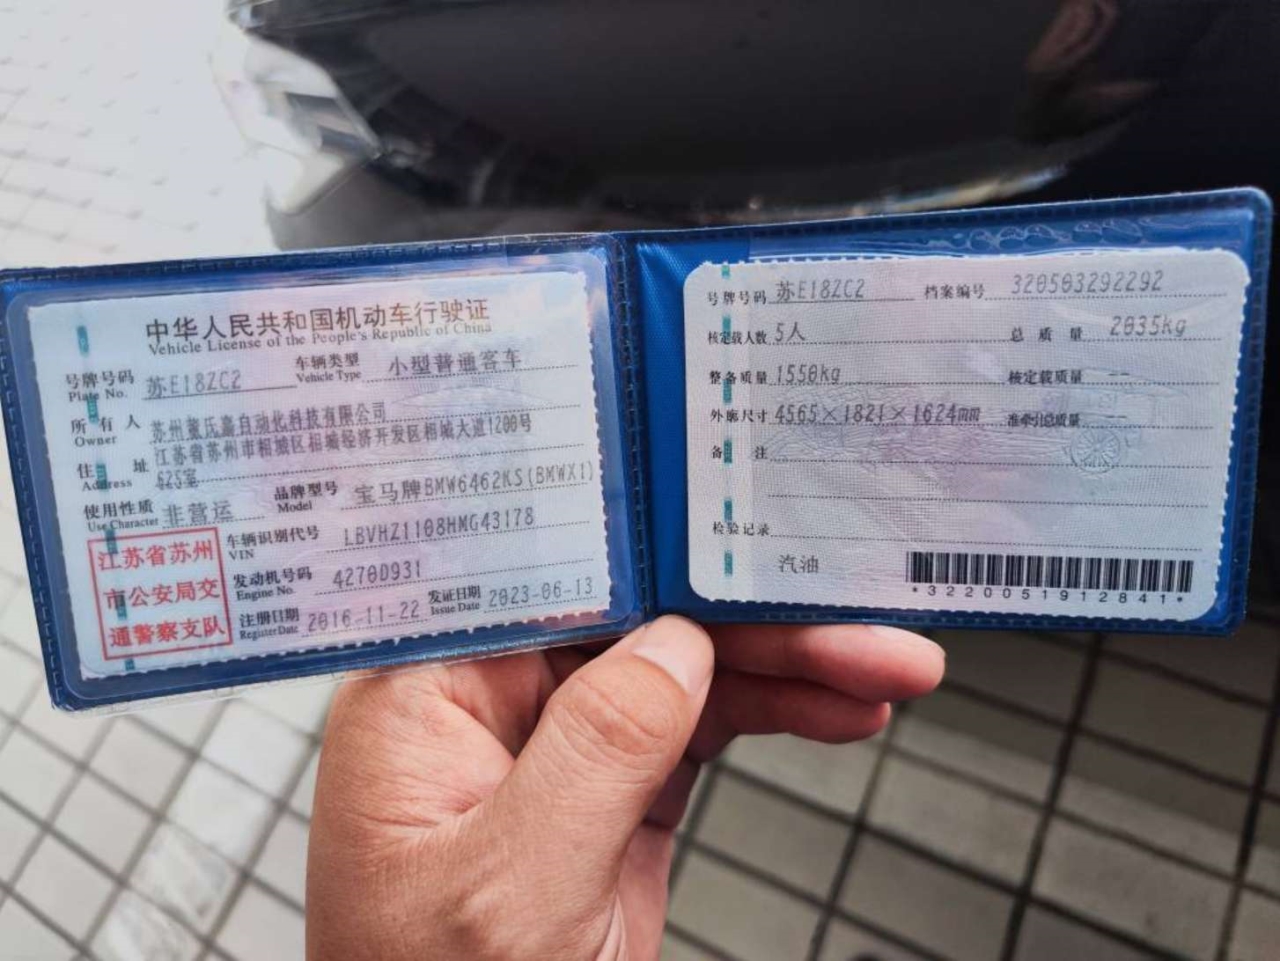 中华人民共和国机动车行驶证
Vehicle License of the People's Republic of China
号牌号码 苏E18ZC2 车辆类型 小型普通客车
Plate No. Vehicle Type
所有人 苏州 氏鑫自动化科技有限公司
Owner
住址 江苏省苏州市相城区相城经济开发区相城大道1200号
Address 625室
使用性质 非营运 品牌型号 宝马牌BMW6462KS(BMWX1)
Use Character Model
江苏省苏州
市公安局交
通警察支队
车辆识别代号 LBVHZ1108HMG43178
VIN
发动机号码 4270D931
Engine No.
注册日期 2016-11-22 发证日期 2023-06-13
Register Date Issue Date
号牌号码 苏E18ZC2 档案编号 320503292292
核定载人数 5人 总质量 2035kg
整备质量 1550kg 核定载质量
外廓尺寸 4565×1821×1624mm 准牵引总质量
备注
检验记录
汽油
*3220051912841*